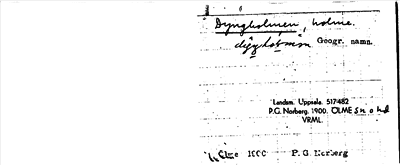 Dyngholmen, holme.
Geogr. namn.
Landsm. Uppsala. 517:482
P.G. Norberg. 1900. ÖLME
VRML.
Ölme 1900 P. G. Norberg